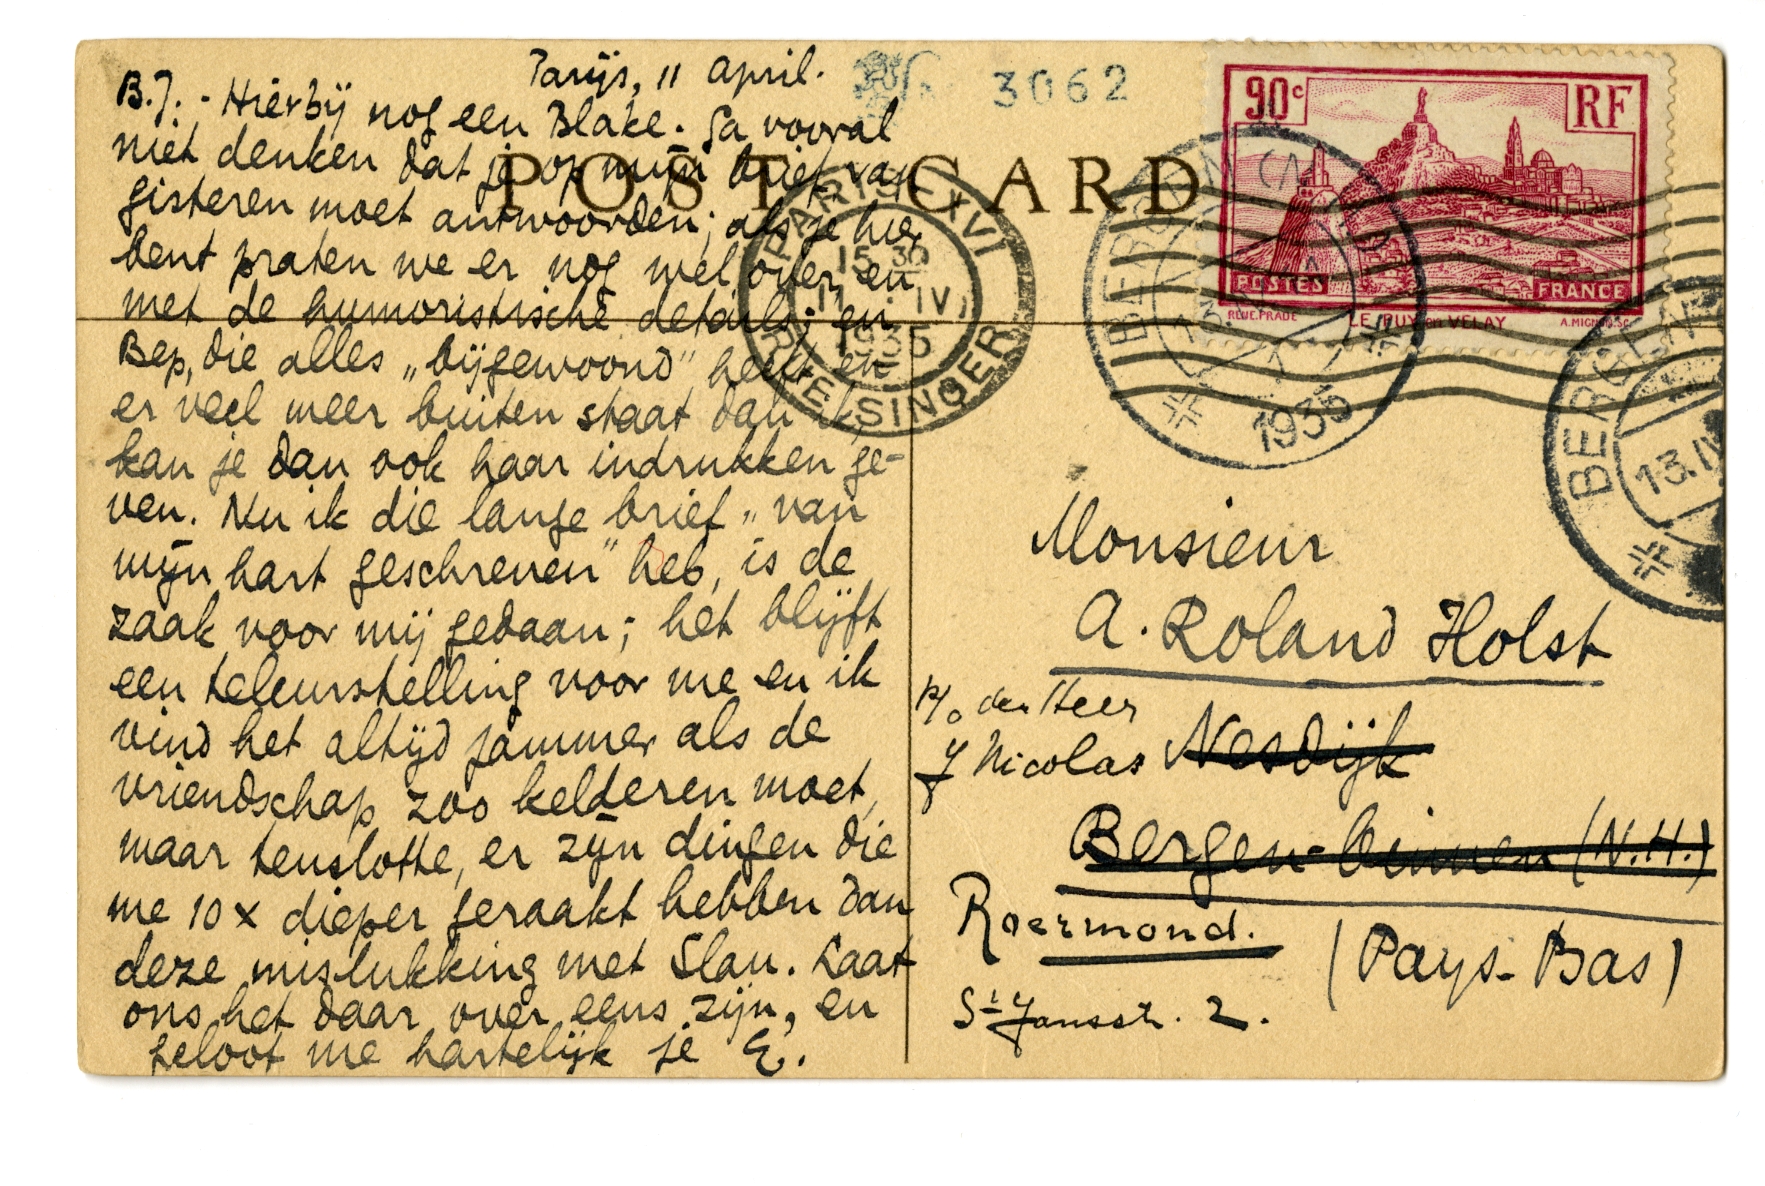 Parijs, 11 april.
3062
B.J. - Hierbij nog een Blake. Ga vooral
niet denken dat je op mijn brief van
gisteren moet antwoorden; als je hier
bent praten we er nog wel over, en
met de humoristische details; en
Bep, die alles „bijgewoond” heeft en
er veel meer buiten staat dan ik,
kan je dan ook haar indrukken ge-
ven. Nu ik die lange brief „van
mijn hart geschreven” heb, is de
zaak voor mij gedaan; het blijft
een teleurstelling voor me en ik
vind het altijd jammer als de
vriendschap zoo kelderen moet,
maar tenslotte, er zijn dingen die
me 10 x dieper geraakt hebben dan
deze mislukking met Slau. Laat
ons het daar over eens zijn, en
geloof me hartelijk je E.
POST CARD
PARIS XVI
15 30
11 IV
1935
RUE SINGER
90c
RF
POSTES
FRANCE
REUE.PRADE
LE PUY EN VELAY
A.MIGNON.SC.
BERGEN (N
1935
BERGEN
13.IV
Monsieur
A. Roland Holst
p/o den Heer
J Nicolas Nesdijk
Bergen-binnen (N.H.)
Roermond.
(Pays-Bas)
St Jansstr. 2.